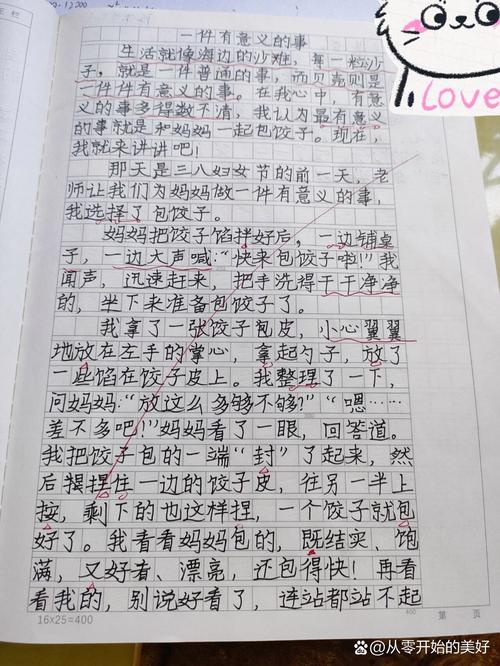 一件有意义的事
生活就像海边的沙滩，每一粒沙
子，就是一件普通的事，而贝壳则是
一件件有意义的事。在我心中，有意
义的事多得数不清，我认为最有意义
的事就是和妈妈一起包饺子。现在，
我就来讲讲吧！
那天是三八妇女节的前一天，老
师让我们为妈妈做一件有意义的事，
我选择了包饺子。
妈妈把饺子馅拌好后，一边铺桌
子，一边大声喊：“快来包饺子啦！”我
闻声，迅速赶来，把手洗得干干净净
的，坐下来准备包饺子了。
我拿了一张饺子包皮，小心翼翼
地放在左手的掌心，拿起勺子，放了
一些馅在饺子皮上。我整理了一下，
问妈妈：“放这么多够不够？”“嗯……
差不多吧！”妈妈看了一眼，回答道。
我把饺子包的一端“封”了起来，然
后捏住一边的饺子皮，往另一半上
按，剩下的也这样捏，一个饺子就包
好了。我看看妈妈包的，既结实、饱
满，又好看、漂亮，还包得快！再看
看我的，别说好看了，连站都站不起
16×25=400
400
第 页
Love
@从零开始的美好